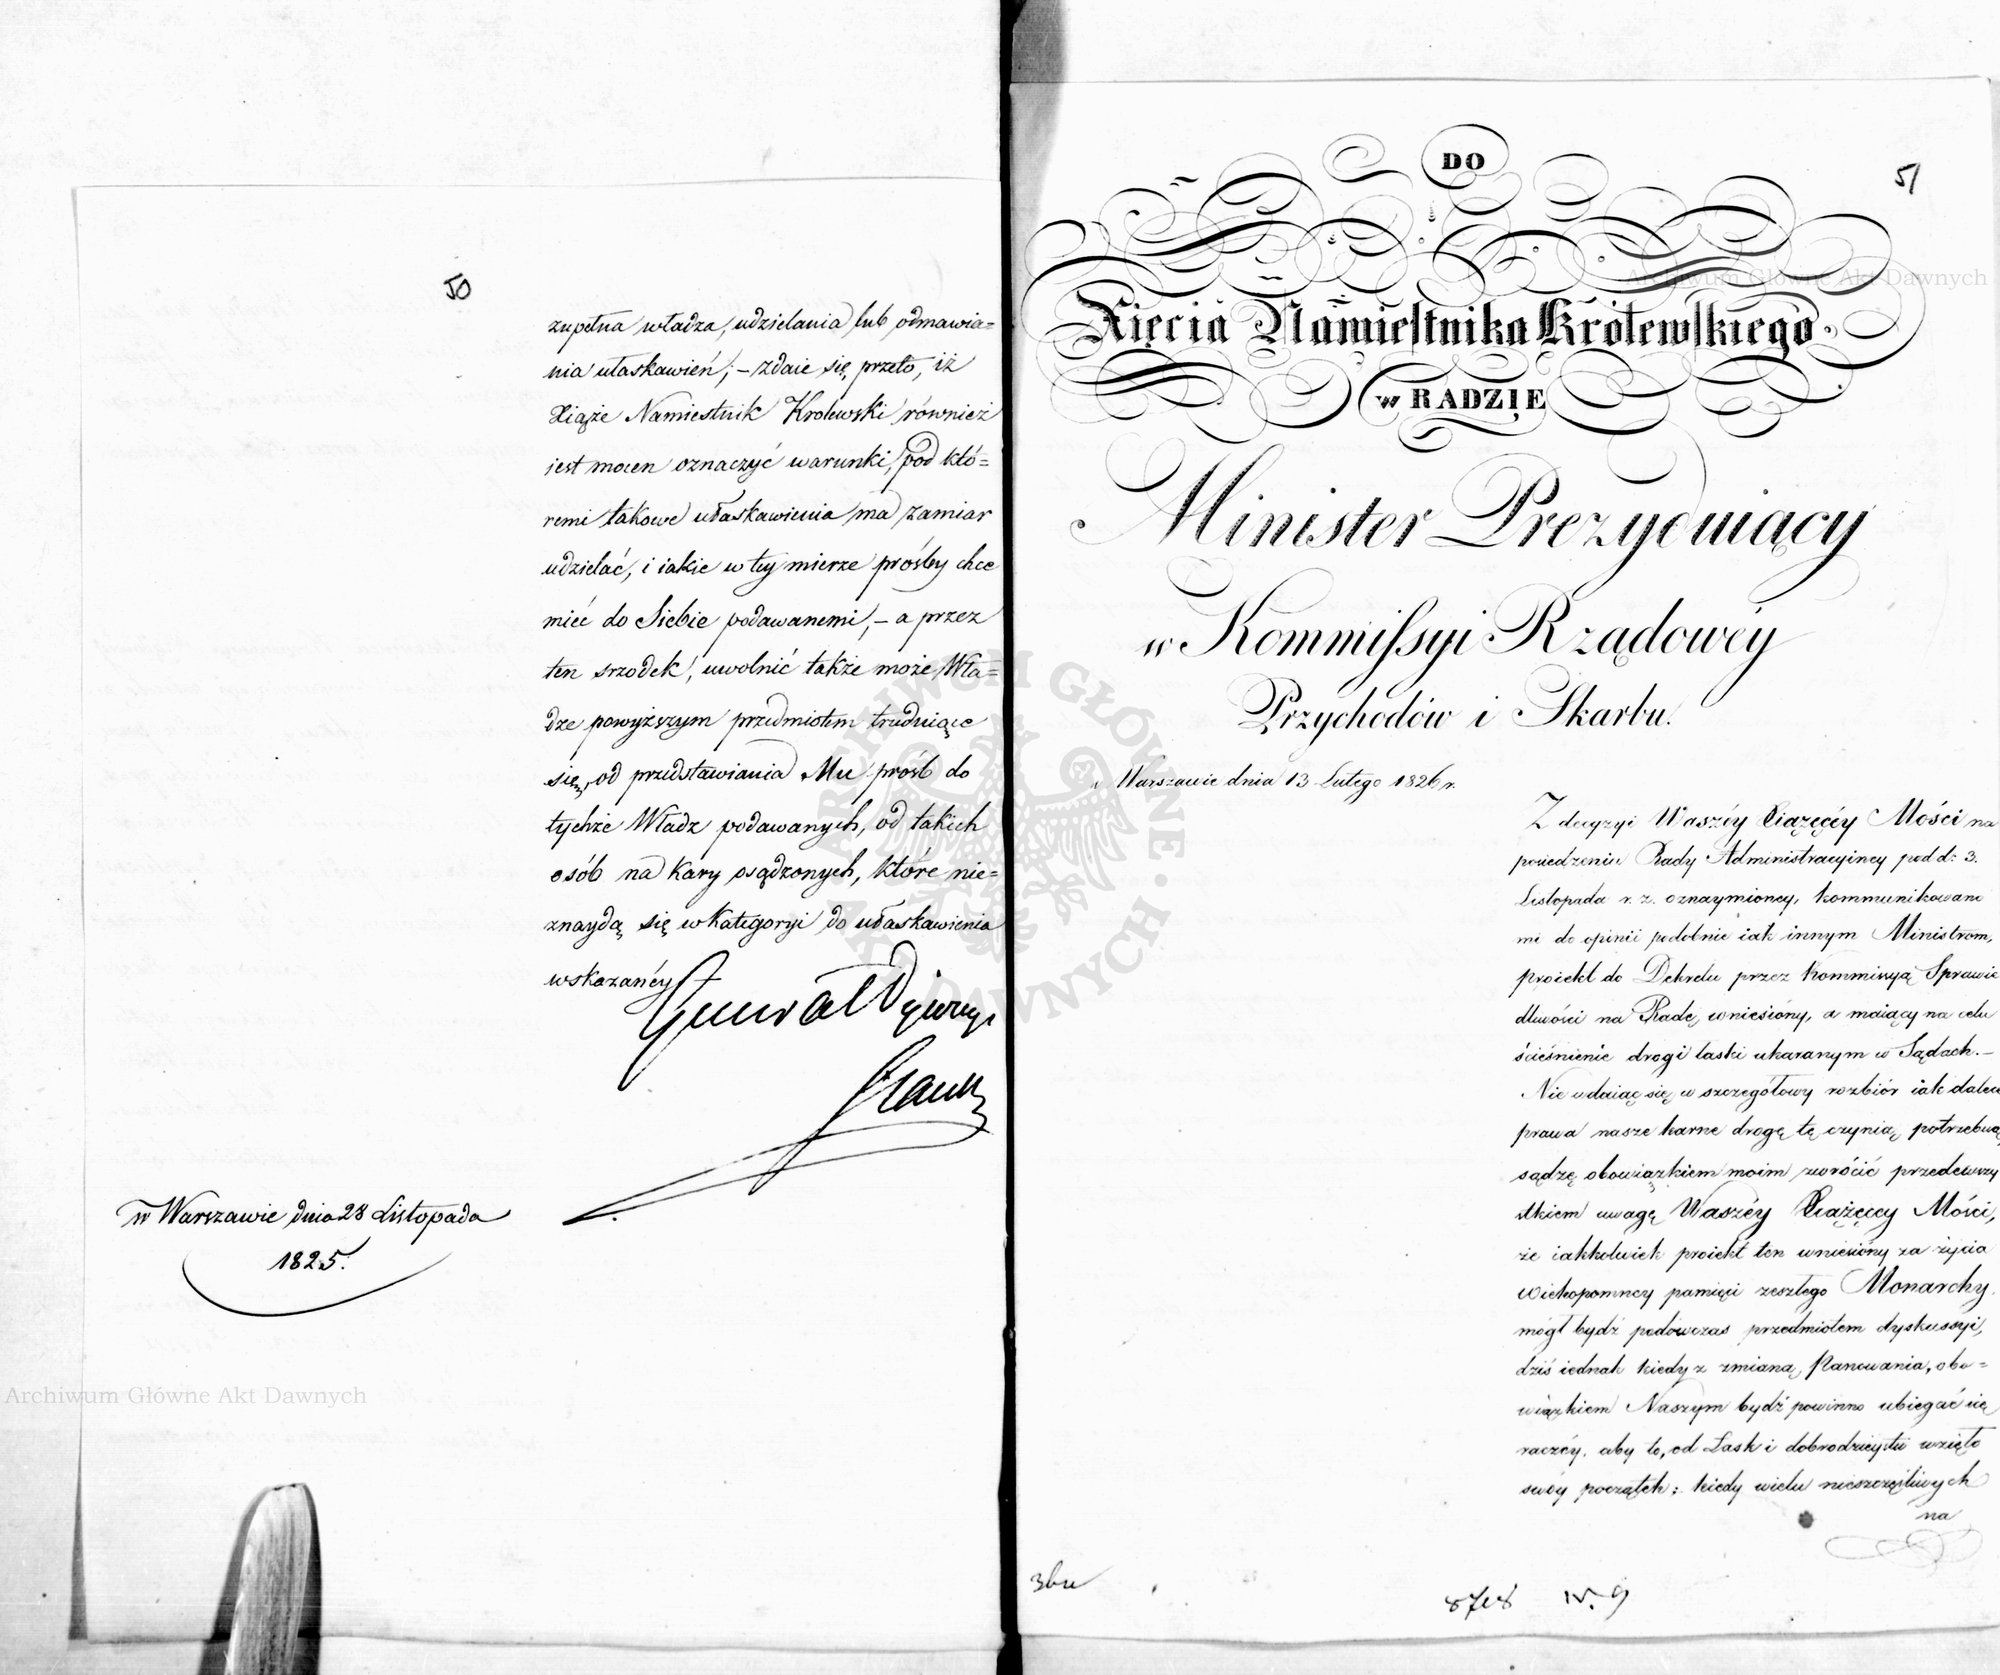 50
zupełna władza, udzielania lub odmawia=
nia ułaskawień; – zdaie się przeto, iż
Xiąże Namiestnik Krolewski również
iest mocen oznaczyć warunki, pod któ=
remi takowe ułaskawienia ma zamiar
udzielać, i iakie w tey mierze prośby chce
mieć do Siebie podawanemi, – a przez
ten srzodek, uwolnić także może Wła=
dze powyższym przedmiotem trudniące
się, od przedstawiania Mu prośb do
tychże Władz podawanych, od takich
osób na kary osądzonych, które nie=
znaydą się w Kategoryi do ułaskawienia
wskazanéy
Generał
w Warszawie dnia 28 Listopada
1825.
51
DO
Xięcia Namiestnika Królewskiego
w RADZIE
Minister Prezyduiący
w Kommissyi Rządowéy
Przychodów i Skarbu.
w Warszawie dnia 13 Lutego 1826 r.
Z decyzyi Waszéy Xiążęcéy Mości na
posiedzeniu Rady Administracyiney pod d: 3.
Listopada r. z. oznaymioney, kommunikowano
mi do opinii podobnie iak innym Ministrom,
proiekt do Dekretu przez Kommissyą Sprawie
dliwości na Radę wniesiony, a maiący na celu
ścieśnienie drogi łaski ukaranym w Sądach. –
Nie wdaiąc się w szczegółowy rozbiór iak dalece
prawa nasze karne drogę tę czynią potrzebną
sądzę obowiązkiem moim zwrócić przedewszy
stkiem uwagę Waszéy Xiążęcey Mości,
że iakkolwiek proiekt ten wniesiony za życia
wiekopomney pamięci zeszłego Monarchy,
mógł bydź podówczas przedmiotem dyskussyi,
dziś iednak kiedy z zmianą Panowania, obo=
wiązkiem Naszym bydź powinno ubiegać się
raczéy, aby to, od Łask i dobrodzieystw wzięło
swóy początek; kiedy wielu nieszczęśliwych
na
8708 N. 9
Archiwum Główne Akt Dawnych
Archiwum Główne Akt Dawnych
ARCHIWUM GŁÓWNE AKT DAWNYCH